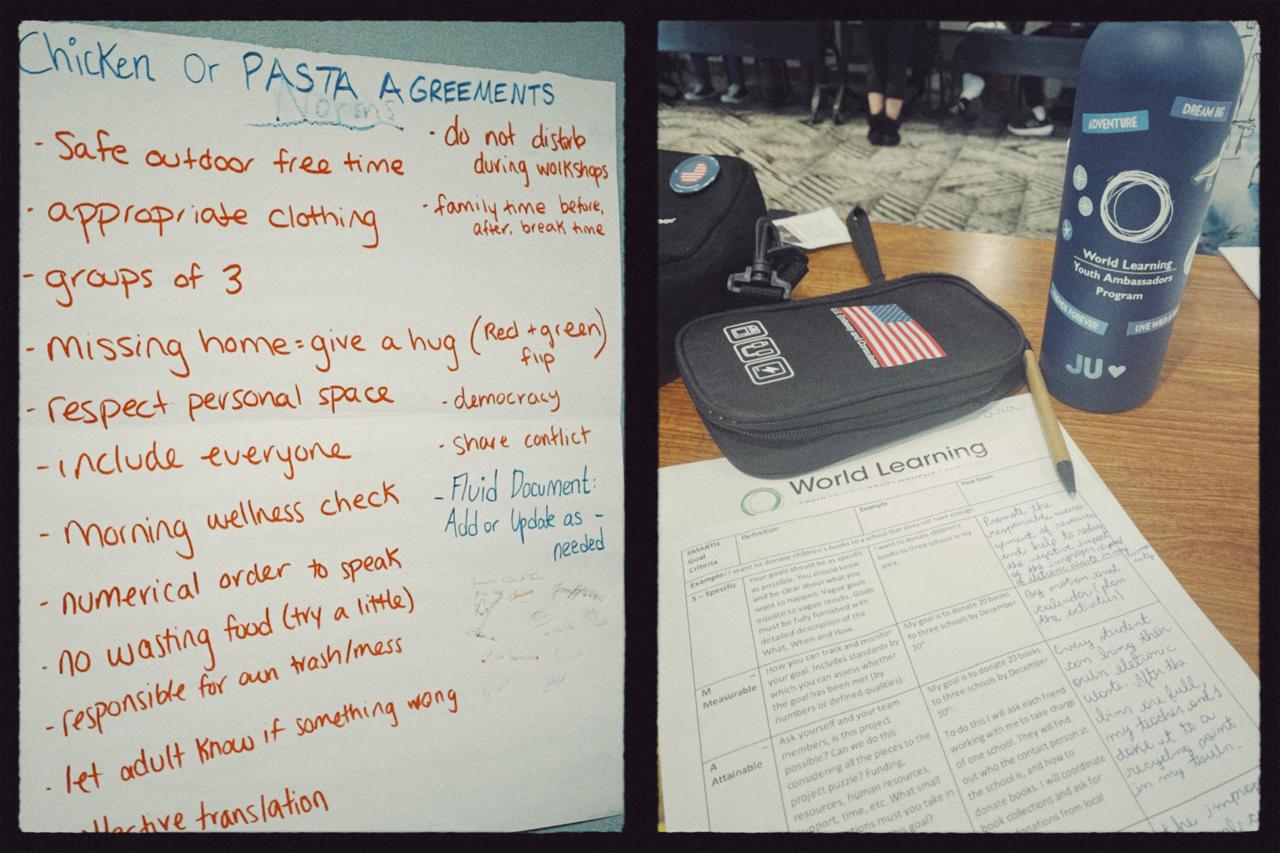 Chicken Or PASTA AGREEMENTS
Norms
- Safe outdoor free time
- appropriate clothing
- groups of 3
- Missing home = give a hug (Red + green)
flip
- respect personal space
- include everyone
- Morning wellness check
- numerical order to speak
- no wasting food (try a little)
- responsible for own trash/mess
- let adult know if something wrong
translation
- do not disturb
during workshops
- family time before,
after, break time
- democracy
- share conflict
- Fluid Document:
Add or Update as -
needed
ADVENTURE
DREAM BIG
World Learning
Youth Ambassadors
Program
FOREVER
LIVE
JU
World Learning
SMARTIE
Goal
Criteria
Definition
Example
Your Goals
Example: I want to donate children's books to a school that does not have enough.
S – Specific
Your goals should be as specific
as possible. You should know
and be clear about what you
want to happen. Vague goals
equate to vague results. Goals
must be fully furnished with
detailed description of the
What, When and How.
I want to donate children's
books to three schools in my
area.
Promote the
responsible
of resources
and help to reduce
the negative impact
of the improper
by
calendar (plan
the activities)
M –
Measurable
How you can track and monitor
your goal. Includes standards by
which you can assess whether
the goal has been met (by
numbers or defined qualities).
My goal is to donate 20 books
to three schools by December
10th.
Every student
can bring their
own eletronic
waste. After the
bins are full,
my teacher and I
take it to a
recycling point
in my
A
Attainable
Ask yourself and your team
members, is this project
possible? Can we do this
considering all the pieces to the
project puzzle? Funding,
resources, human resources,
support, time, etc. What small
must you take in
this goal?
My goal is to donate 20 books
to three schools by December
10th.
To do this I will ask each friend
working with me to take charge
of one school. They will find
out who the contact person at
the school is, and how to
donate books. I will coordinate
book collections and ask for
donations from local
the